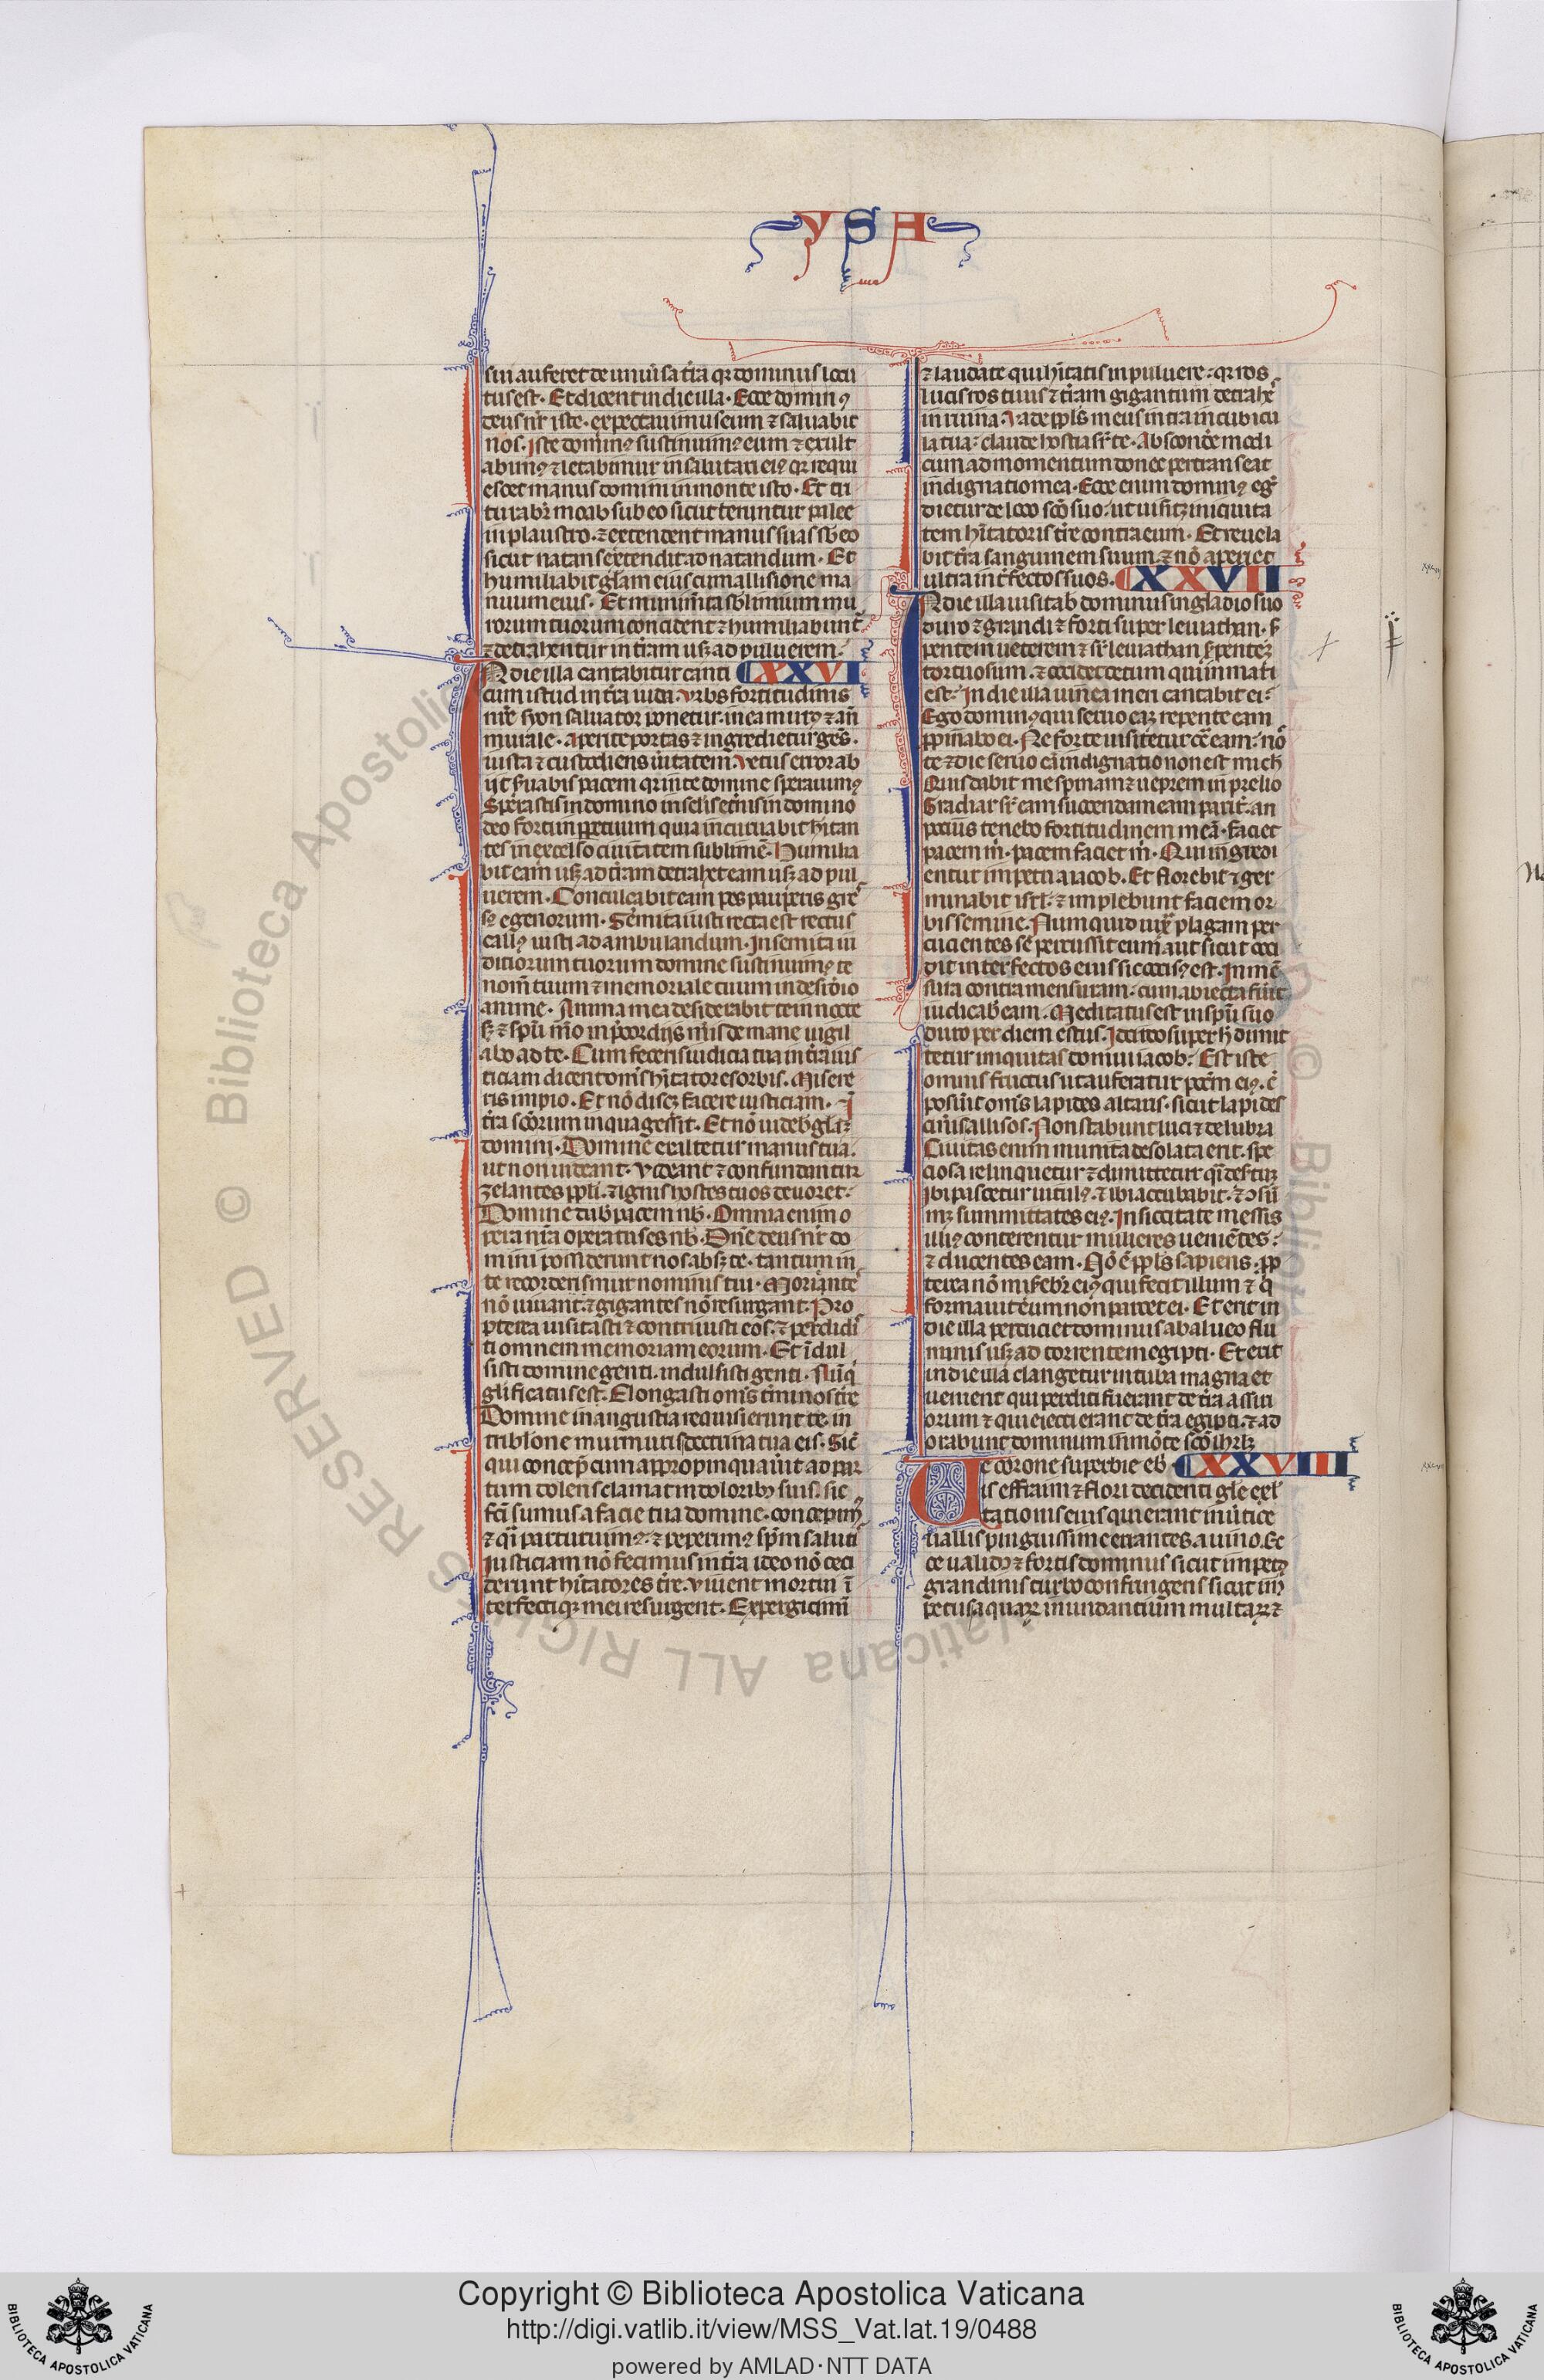 YSA
sui auferet de uniu̾sa t̾ra qꝛ dominus locu
tus est. Et dicent in die illa. Ecce dominꝰ
deus nr̄ iste. expectauimus eum ⁊ saluabit
nos. Iste dominꝰ sustinuimꝰ eum ⁊ exult
abimꝰ ⁊ letabimur in salutari eiꝰ qꝛ requi
escet manus domini in monte isto. Et tri
turabr̄ moab sub eo sicut teruntur palee
in plaustro. ⁊ extendent manus suas sb̄ eo
sicut natans extendit ad natandum. Et
humiliabit gl̄am eius cum allisione ma
nuum eius. Et munim̄ta sb̄limium mu
rorum tuorum concident ⁊ humiliabunt᷑
⁊ detrahentur in t̾ram usqꝫ ad puluerem.
XXVI
IN die illa cantabitur canti
cum istud in t̾ra iuda. Vrbs fortitudinis
nr̄e syon saluator ponetur in ea murꝰ ⁊ an̄
murale. Aperite portas ⁊ ingredietur gēs.
iusta ⁊ custodiens u̾itatem. Vetus error ab
ijt s̾uabis pacem qꝛ in te domine sperauimꝰ
Sperastis in domino in sel̄is et̾nis in domino
deo forti in ꝑpetuum quia incuruabit hītan
tes in excelso ciuitatem sublimē. Humilia
bit eam usqꝫ ad t̾ram detrahet eam usqꝫ ad pul
uerem. Conculcabit eam pes pauꝑis gre
sꝰ egenorum. Semita iusti recta est rectus
callꝰ iusti ad ambulandum. In semita iu
diciorum tuorum domine sustinuimꝰ te
nom̄ tuum ⁊ memoriale tuum in desid̾io
anime. Anima mea desiderabit te in nocte
sꝫ ⁊ spū meo in p̾cordijs meis de mane uigil
abo ad te. Cum feceris iudicia tua in t̾ra ius
ticiam dicent om̄s hītatores orbis. Misere
ris impio. Et nō discꝫ facere iusticiam. I
t̾ra sc̄orum iniqua gessit. Et nō uideb̄ gl̄iaꝫ
domini. Domine exiltetur manus tua.
ut non uideant. Videant ⁊ confundantur
zelantes ppl̄i. ⁊ ignis hostes tuos deuoret.
Domine dab̄ pacem nb̄. Omnia enim o
pera nr̄a operatus es nb̄. Dn̄e deus nr̄ do
mini possederunt nos absqꝫ te. tantum in
te recordemur nominis tui. Moriante
nō uiuant. ⁊ gigantes nō resurgant. Pro
pterea uisitasti ⁊ contriuisti eos. ⁊ perdidi
ti omnem memoriam eorum. Et īdul
sisti domine genti. indulsisti genti. Nūq̄
gl̄ificatus est. Elongasti om̄s t̾minos t̾re
Domine in angustia requisierunt te. in
tribl̄one murmuris doctrina tua eis. Sic̄
qui concep̄ cum appropinquau̾it ad par
tum dolens clamat in doloribꝰ suis. sic
fc̄i sumus a facie tua domine. concepimꝰ
⁊ q̄i parturiuimꝰ. ⁊ peperimꝰ spm̄ saluti
Iusticiam nō fecimus in t̾ra ideo nō ceci
derunt hītatores t̾re. Viuent mortui ī
terfectiqꝫ mei resurgent. Expergiscimī
⁊ laudate qui hītatis in puluere. qꝛ ros
lucis ros tuus ⁊ t̾ram gigantum detrahes
in ruina. Vade ppl̄s meus intra in cubicu
la tua. claude hostia sr̄ te. Absconde modi
cum ad momentum donec pertranseat
indignatio mea. Ecce enim dominꝰ egr̄
dietur de loco sc̄o suo. ut uisitꝫ iniquita
tem hītatoris t̾re contra eum. Et reuela
bit t̾ra sanguinem suum. ⁊ nō aperiet
ultra int̾fectos suos. XXVII
IN die illa uisitab̄ dominus in gladio suo
duro ⁊ grandi ⁊ forti super leuiathan. s̾
pentem ueterem ⁊ sr̄ leuiathan s̾penteꝫ
tortuosum. ⁊ occidet cetum qui in mari
est. In die illa uinea meri cantabit ei.
Ego dominꝰ qui seruo eaꝫ repente eam
ꝓpinabo ei. Ne forte uisitetur cō eam. nō
te ⁊ die seruo eā indignatio non est mich
Quis dabit me spinam ⁊ ueprem in prelio
Gradiar sr̄ eam succendam eam parit̾. an
pocius tenebo fortitudinem meā. faciet
pacem m̄. pacem faciet m̄. Qui ingredi
entur impetu a iacob. Et florebit ⁊ ger
minabit isrl̄. ⁊ implebunt faciem or
bis semine. Numquid iuxͣ plagam per
cucientes se percussit eum. aut sicut occi
dit interfectos eius sic occisꝰ est. In mē
sura contra mensuram. cum abiecta fu̾it
iudicab̄ eam. Meditatus est in spū suo
duro per diem estus. Idcirco super h̄ dimit
tetur iniquitas domui iacob. Est iste
omnis fructus ut auferatur pecc̄m eiꝰ. c̄
posu̾it om̄s lapides altaris. sicut lapides
cineris allisos. Non stabunt luci ⁊ delubra
Ciuitas enim munita desolata erit. spe
ciosa relinquetur ⁊ dimittetur q̄i des̾tum
Ibi pascetur uitulꝰ. ⁊ ibi accubabit. ⁊ ꝯsū
mꝫ summitates eiꝰ. In siccitate messis
illiꝰ conterentur mulieres ueniētes.
⁊ ducentes eam. Nō ē ppl̄s sapiens. ꝓp
terea nō mis̾ebr̄ eiꝰ qui fecit illum ⁊ q̄
formauit eum non parcet ei. Et erit in
die illa percuciet dominus ab alueo flu
minis usqꝫ ad torrentem egipti. Et erit
in die illa clangetur in tuba magna et
uenient qui perditi fuerant de t̾ra assiri
orum ⁊ qui eiecti erant de t̾ra egipti. ⁊ ad
orabunt dominum in mōte sc̄o ihrl̄m
Ve corone superbie eb̄ XXVIII
iis effraim ⁊ flori decidenti gl̄e exl̄
tationis eius qui erant in u̾tice
uallis pinguissime errantes a uino. Ec
ce ualidꝰ ⁊ fortis dominus sicut impetꝰ
grandinis turbo confringens sicut im
petus aquaꝝ inundantium multaꝝ ⁊
Copyright © Biblioteca Apostolica Vaticana
http://digi.vatlib.it/view/MSS_Vat.lat.19/0488
powered by AMLAD·NTT DATA
BIBLIOTECA APOSTOLICA VATICANA
BIBLIOTECA APOSTOLICA VATICANA
© Biblioteca Apostolica Vaticana ALL RIGHTS RESERVED